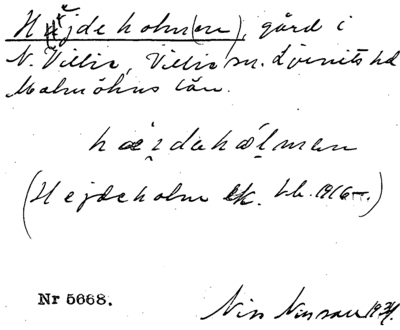 Hejdeholm(en), gård i
N. Villie, Villie sn. Ljunits hd
Malmöhus län.
hæi̯dahål̨men
(Hejdeholm ek. kb. 1916–.)
Nr 5668. Nils Nilsson 1931.